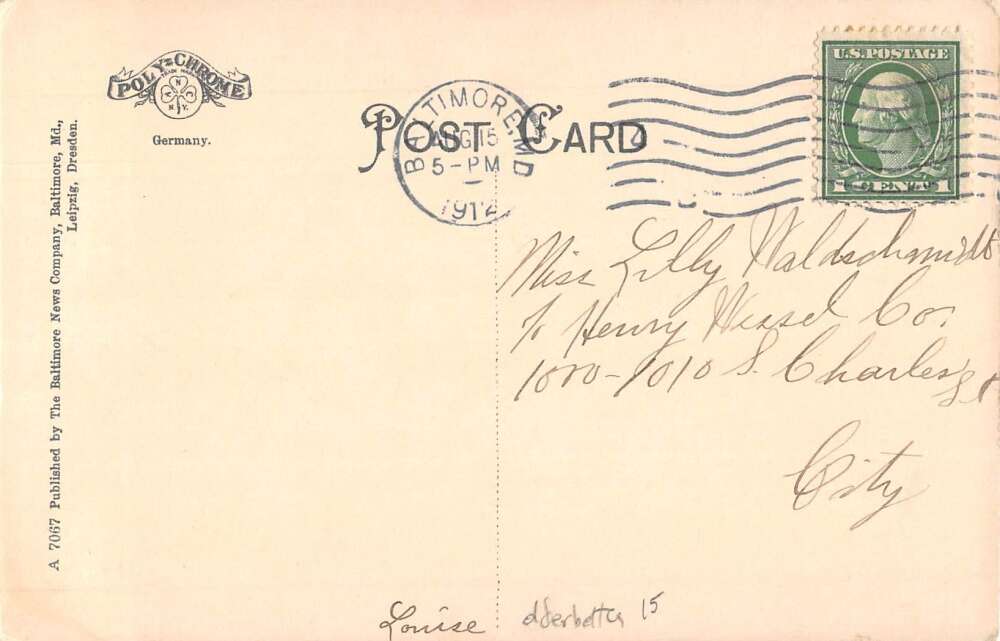 POLY=CHROME
TRADE MARK
A N C
N.Y.
Germany.
A 7067 Published by The Baltimore News Company, Baltimore, Md.,
Leipzig, Dresden.
POST CARD
BALTIMORE, MD
AUG 15
5-PM
1912
U.S. POSTAGE
1 CENT 1
Miss Lilly Waldschmidt
℅ Henry Wessel Co.
1000-1010 S. Charles St
City
Louise
15